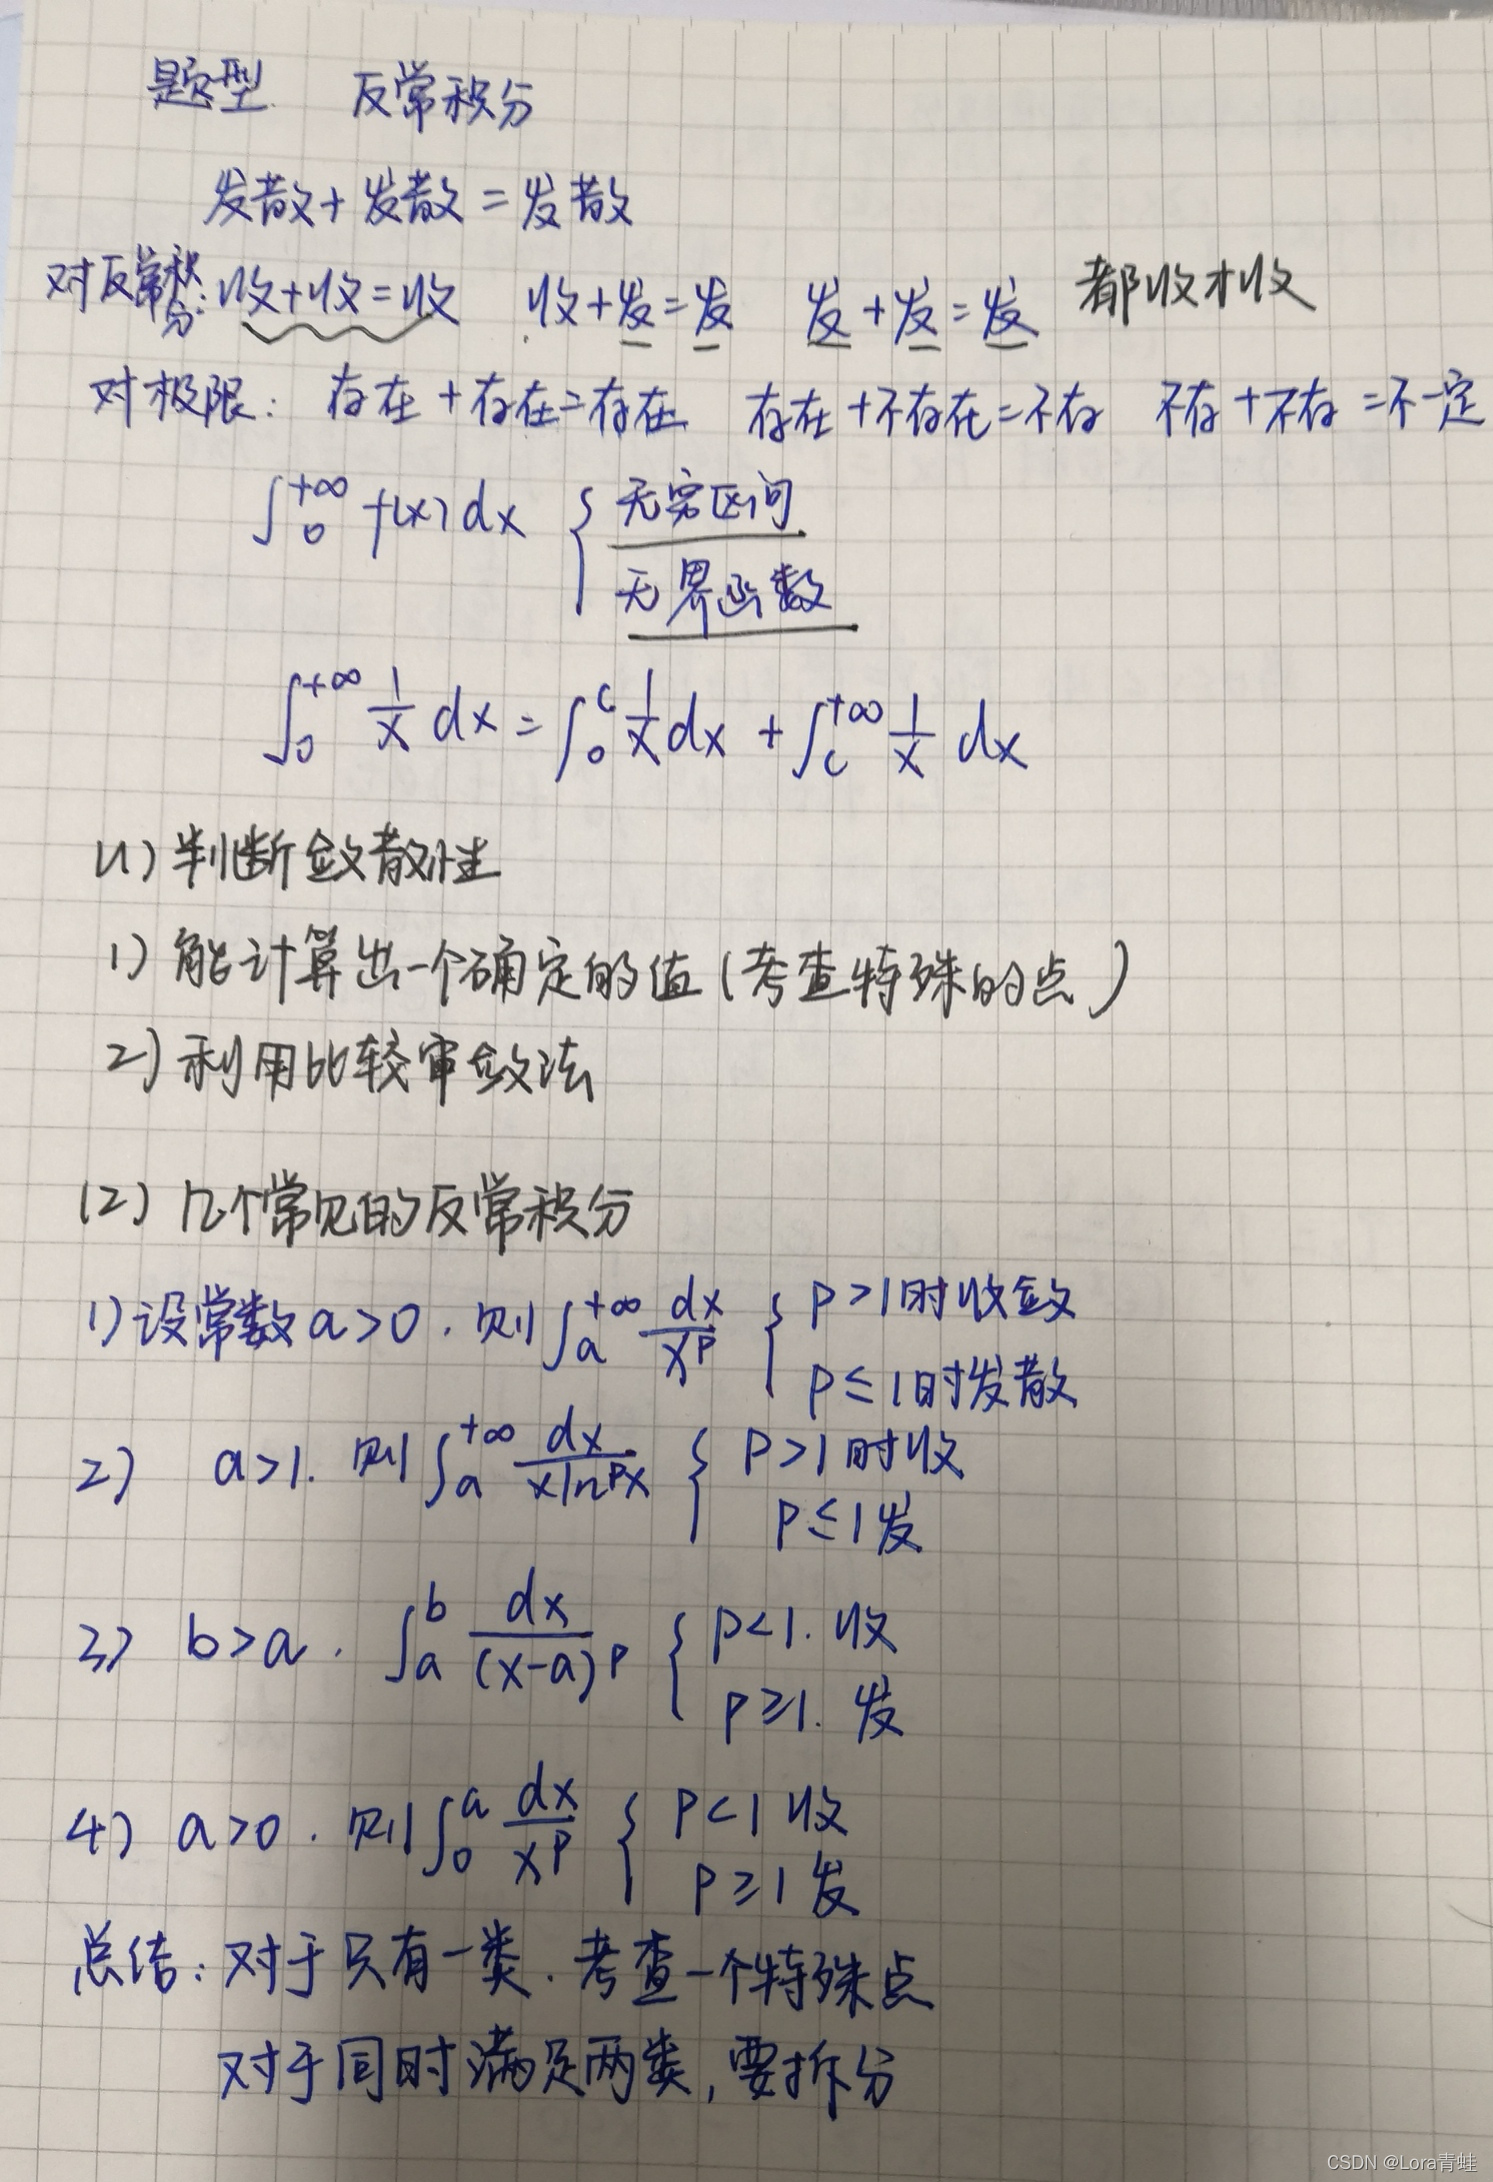 题型 反常积分
发散+发散=发散
对反常积分: 收+收=收 收+发=发 发+发=发 都收才收
对极限: 存在+存在=存在 存在+不存在=不存 不存+不存=不一定
∫₀^{+∞} f(x)dx { 无穷区间
无界函数
∫₀^{+∞} 1/x dx = ∫₀^c 1/x dx + ∫_c^{+∞} 1/x dx
(1) 判断敛散性
1) 能计算出一个确定的值(考查特殊的点)
2) 利用比较审敛法
(2) 几个常见的反常积分
1) 设常数a>0. 则∫_a^{+∞} dx/x^p { p>1时收敛
p≤1时发散
2) a>1. 则∫_a^{+∞} dx/(xln^p x) { p>1时收
p≤1发
3) b>a. ∫_a^b dx/(x-a)^p { p<1. 收
p≥1. 发
4) a>0. 则∫₀^a dx/x^p { p<1 收
p≥1 发
总结: 对于只有一类. 考查一个特殊点
对于同时满足两类, 要拆分
CSDN @Lora青蛙